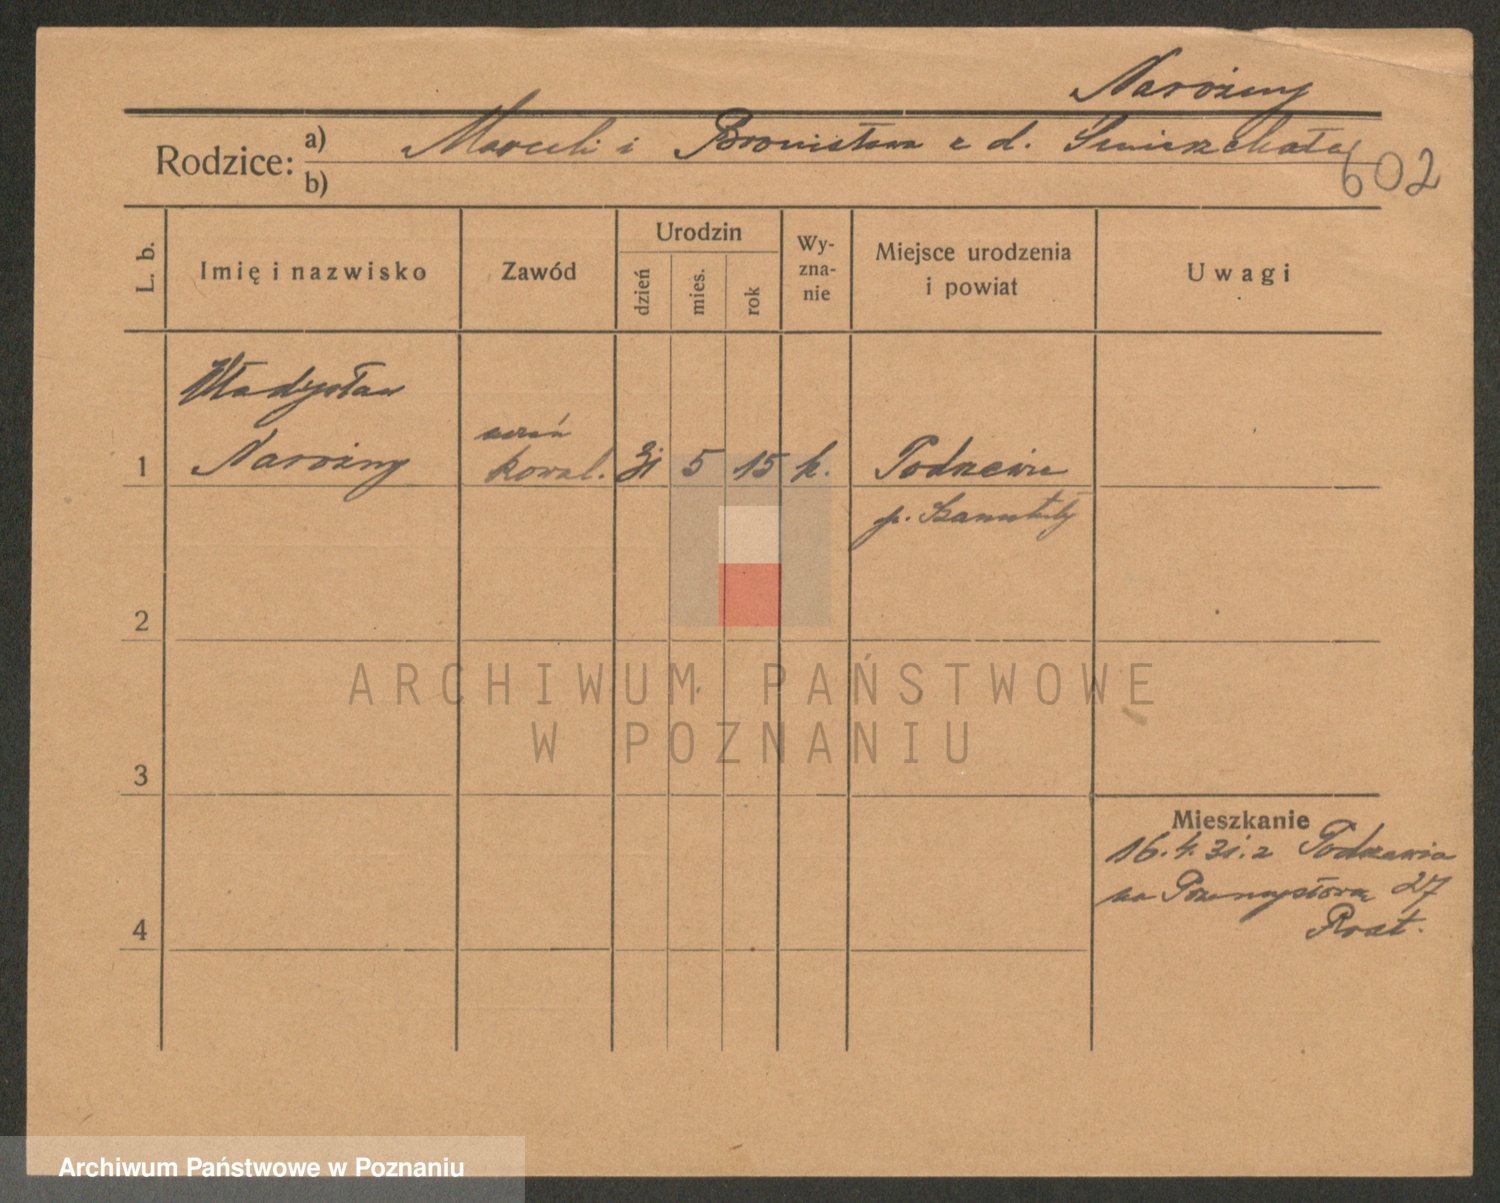 Narożny
Rodzice:
a) Marceli i Bronisława z d.
602
b)
L. b.
Imię i nazwisko
Zawód
Urodzin
dzień
mies.
rok
Wy-
zna-
nie
Miejsce urodzenia
i powiat
Uwagi
Władysław
1 Narożny
uczeń
kowal.
31 5 15 k.
Podrzewie
p. Szamotuły
2
3
4
Mieszkanie
16. 4. 31. z Podrzewia
na Przemysłową 27
ARCHIWUM PAŃSTWOWE
W POZNANIU
Archiwum Państwowe w Poznaniu